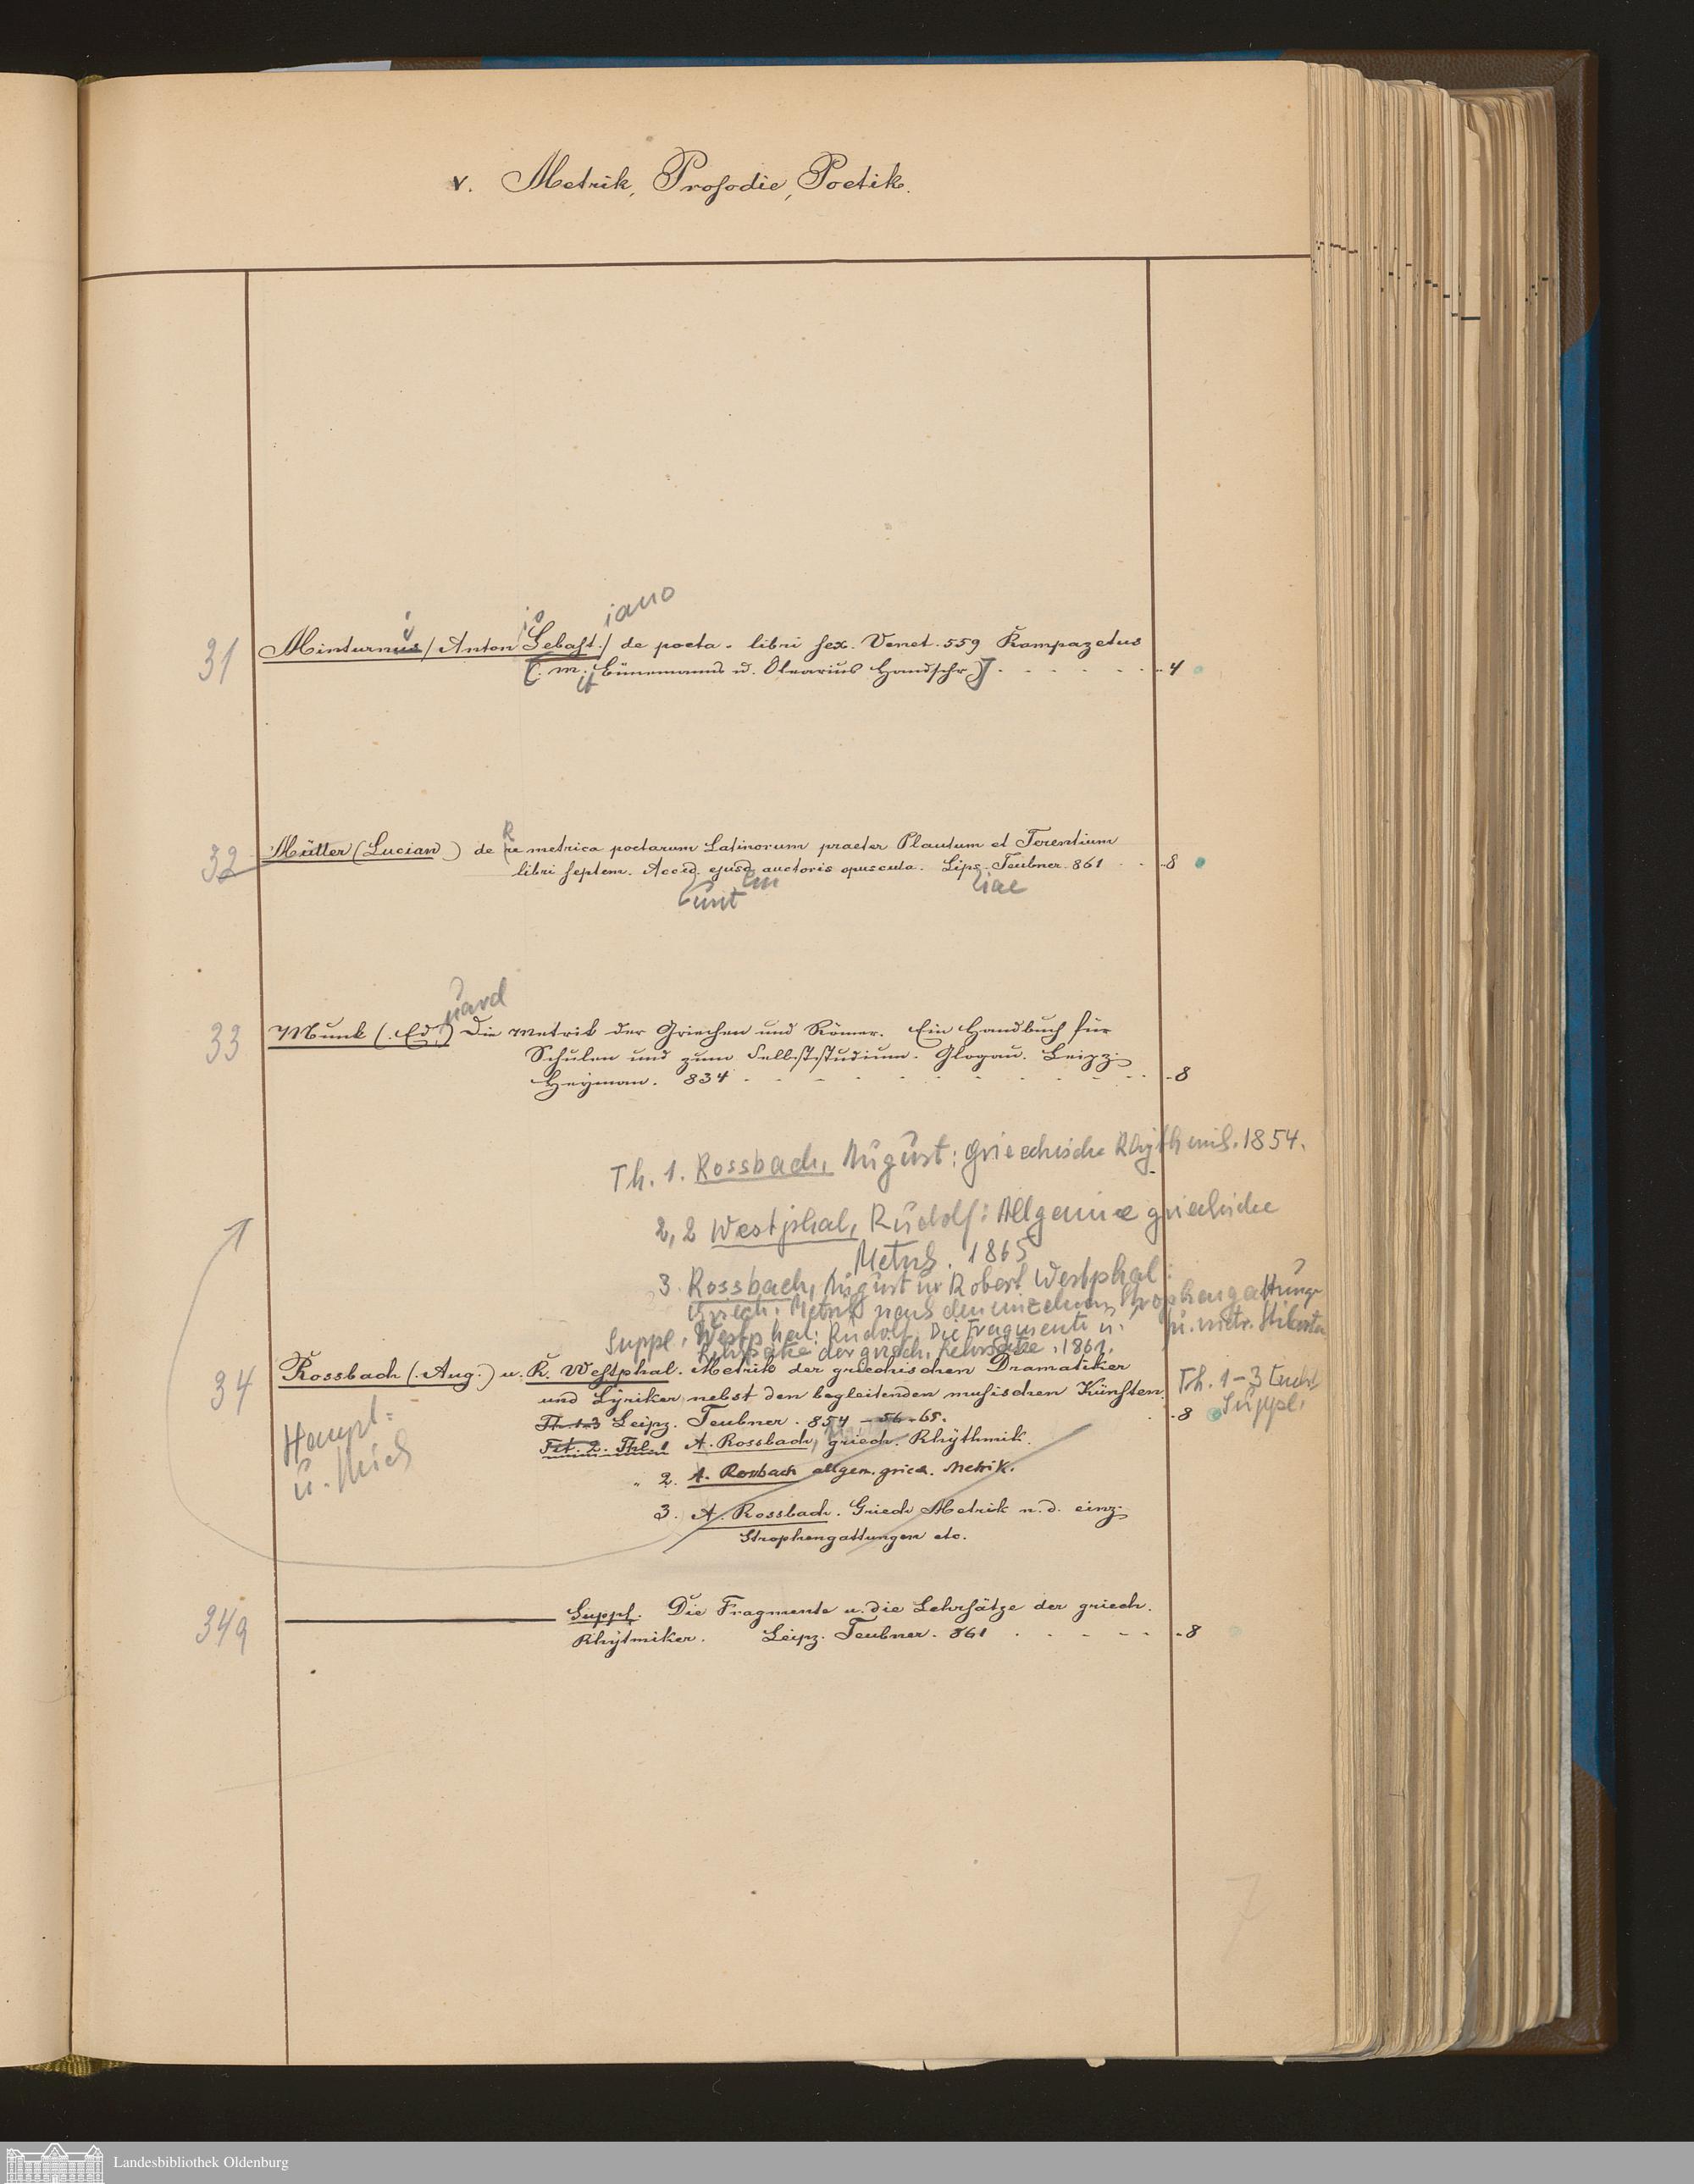 v. Metrik, Prosodie, Poetik.
iano
io
i
31 Minturnus (Anton Sebast.) de poeta. libri sex. Venet. 559 Rampazetus
[(. m. Bünemanns u. Olearius Handschr)] .. 4
R
32 Müller (Lucian) de re metrica poetarum Latinorum praeter Plautum et Terentium
libri septem. Acced. ejusd. auctoris opuscula. Lips. Teubner. 861 .. 8
em
unt
iae
uard
33 Munk (. Ed.) Die Metrik der Griechen und Römer. Ein Handbuch für
Schulen und zum Selbststudium. Glogau. Leipz.
Heyman. 834 .. 8
Th. 1. Rossbach, August: Griechische Rhythmik. 1854.
2,2 Westphal, Rudolf: Allgemeine griechische
Metrik. 1865
3. Rossbach, August u. Robert Westphal:
Griech. Metrik nach den einzelnen Strophengattungen
u. metr.
Suppl. Westphal, Rudolf. Die Fragmente u.
Lehrsätze der griech. 1861.
34 Rossbach (. Aug.) u. R. Westphal. Metrik der griechischen Dramatiker
und Lyriker nebst den begleitenden musischen Künsten
Th. 1-3 Leipz. Teubner. 854 - 56 - 65. .. 8
Th. 1-3
Suppl.
Haupt-
u.
Tit. 2. Thl. 1 A. Rossbach, griech. Rhythmik.
" 2. A. Rossbach allgem. griech. Metrik.
3. A. Rossbach. Griech Metrik n. d. einz.
Strophengattungen etc.
34a Suppl. Die Fragmente u. die Lehrsätze der griech.
Rhytmiker. Leipz. Teubner. 861 .. 8
7
Landesbibliothek Oldenburg